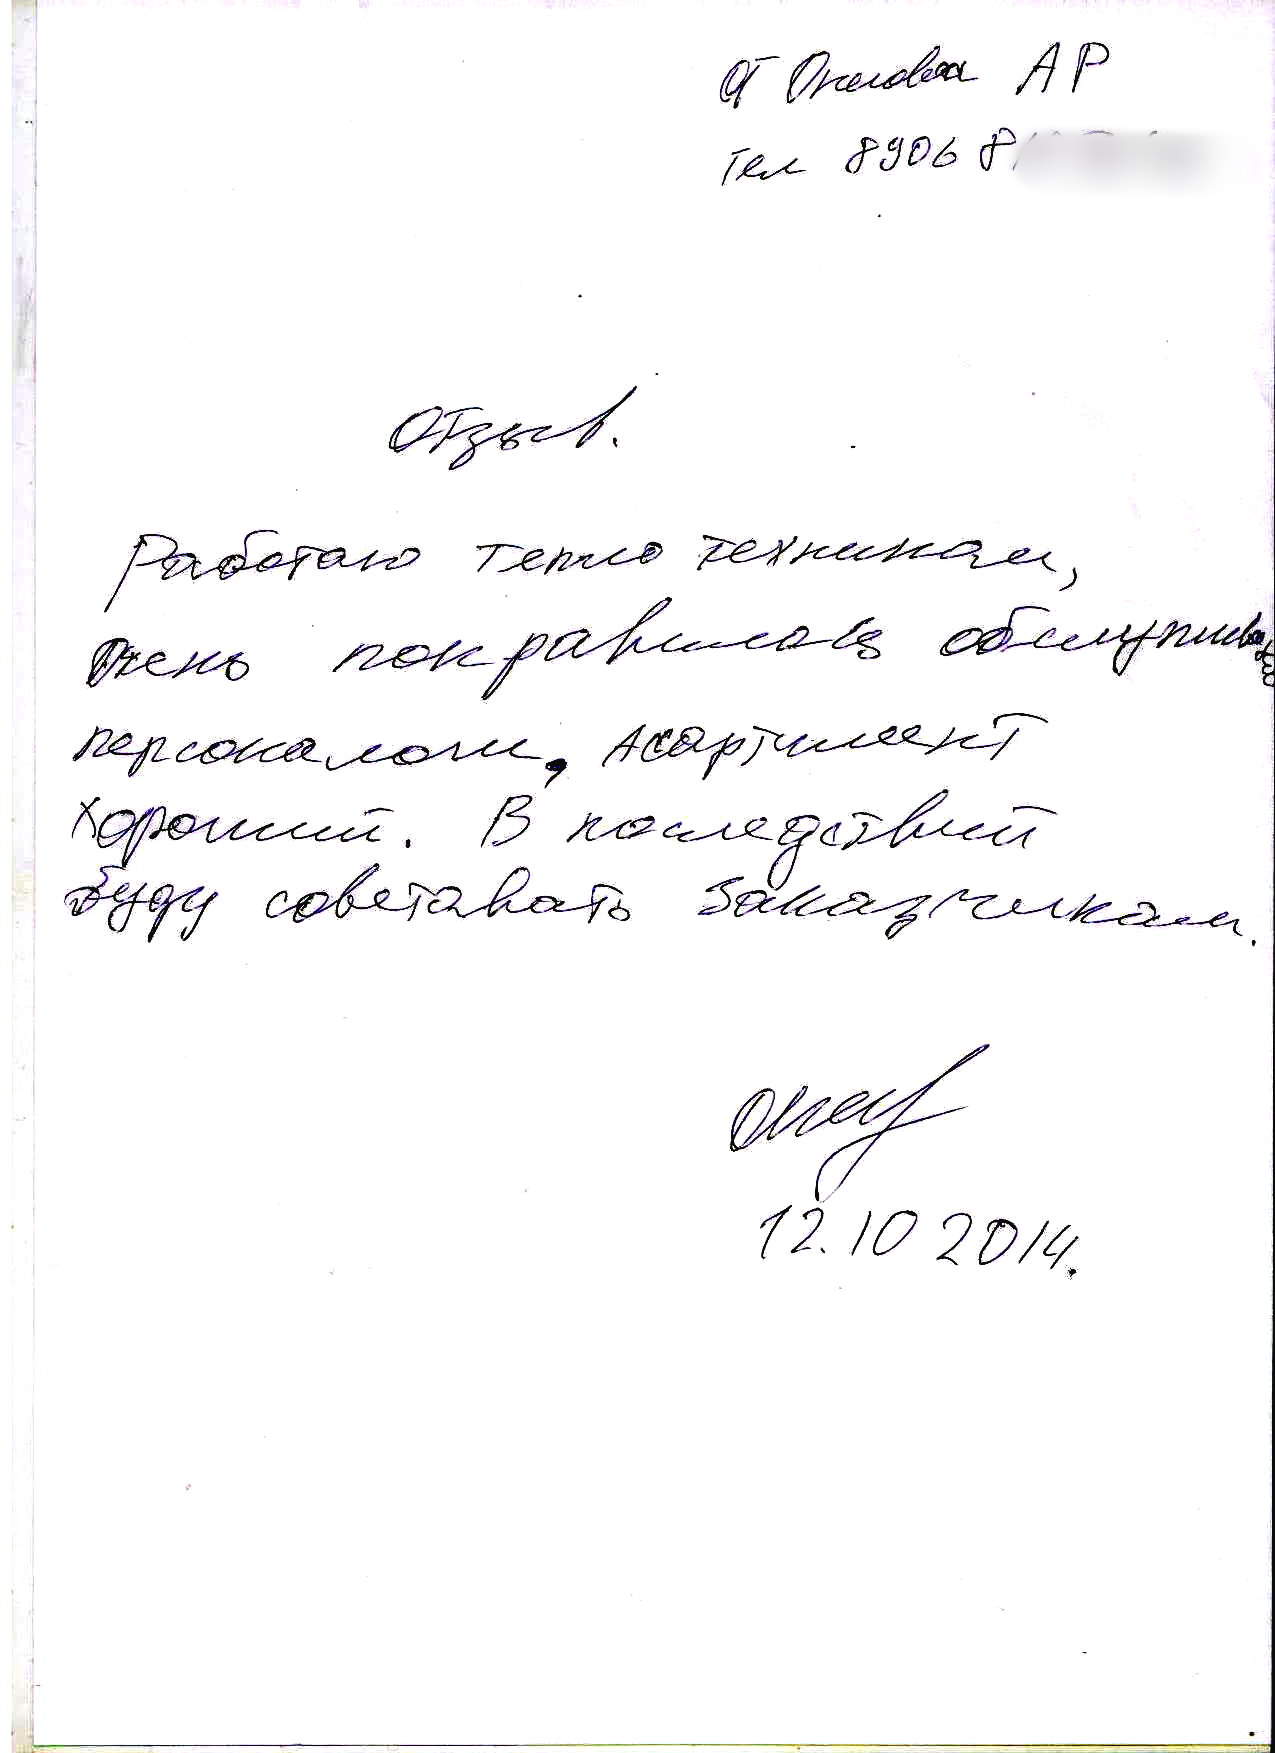 от АР
тел 8906 8
Отзыв.
Работаю тепло техникам,
Очень понравилось
персоналом, Асартимент
хороший. В последствий
буду советавать заказчикам.
12.10 2014.